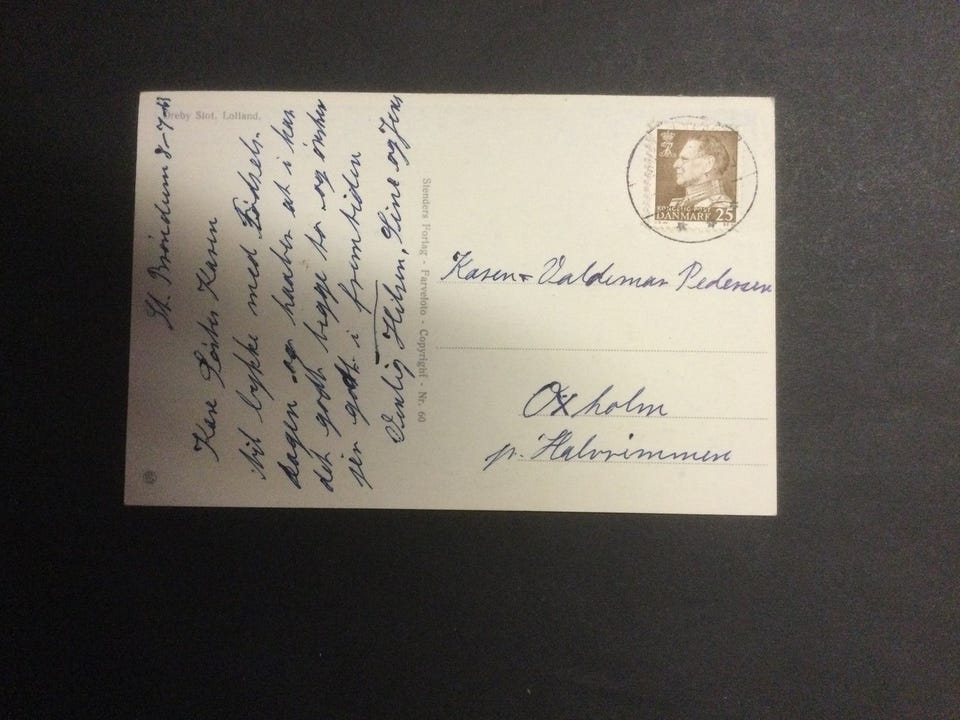 Oreby Slot, Lolland.
St. Bröndum 8-7-63
Kære Söster Karen
til lykke med Födsels.
dagen og haaber at i har
det godt begge to og önsker
jer godt i fremtiden
Venlig Hilsen, Sine og Jens
Stenders Forlag - Farvefoto - Copyright - Nr. 60
KONGELIG POST
DANMARK 25
Karen & Valdemar Pedersen
Oxholm
pr. Halvrimmen